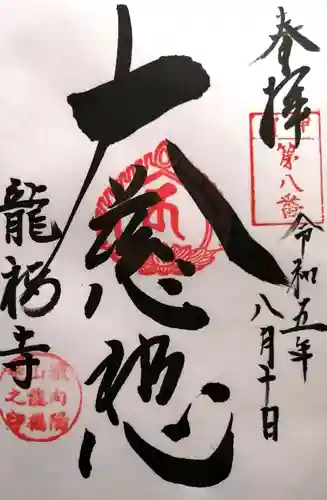 奉拝
第八番
令和五年
八月十日
大慈悲
龍福寺